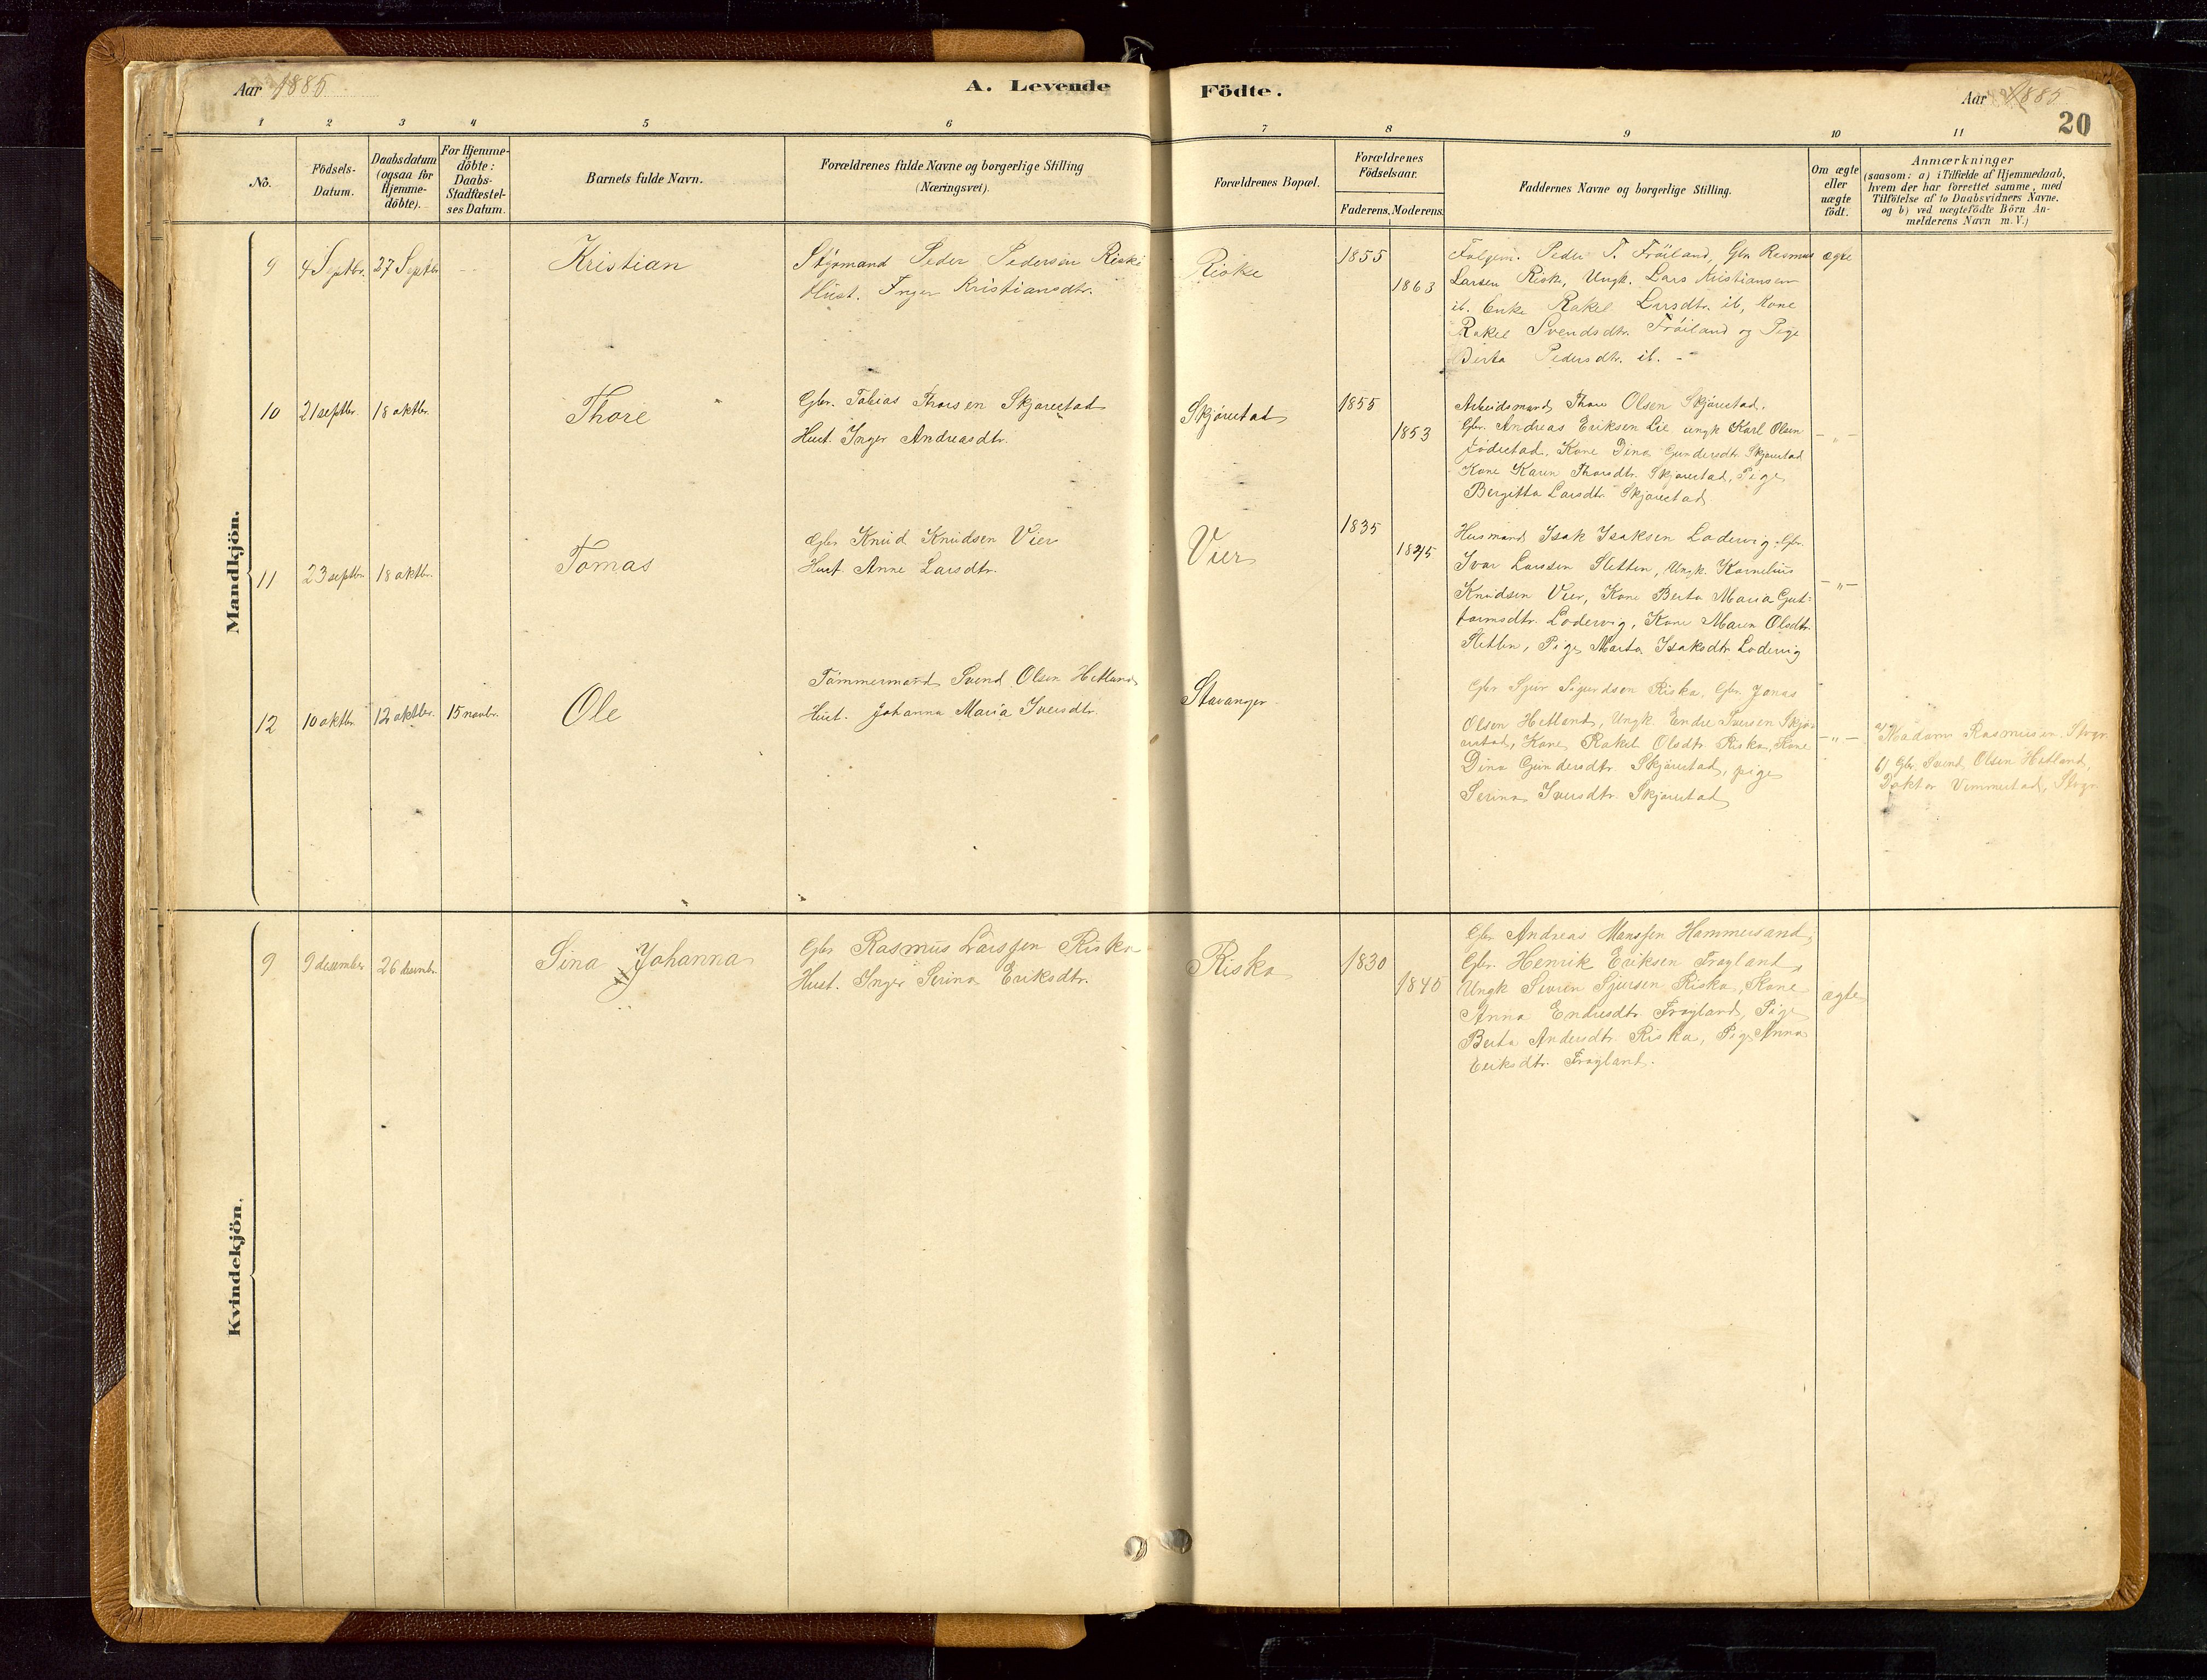 Aar 1885.
A. Levende
Födte.
Aar 1885
20
1 2 3 4 5 6 7 8 9 10 11
No.
Födsels-
Datum.
Daabsdatum
(ogsaa för
Hjemme-
döbte).
For Hjemme-
döbte:
Daabs-
Stadfæstel-
ses Datum.
Barnets fulde Navn.
Forældrenes fulde Navne og borgerlige Stilling
(Næringsvei).
Forældrenes Bopæl.
Forældrenes
Födselsaar.
Faderens. Moderens.
Faddernes Navne og borgerlige Stilling.
Om ægte
eller
uægte
födt.
Anmærkninger
(saasom: a) i Tilfælde af Hjemmedaab,
hvem der har forrettet samme, med
Tilföielse af to Daabsvidners Navne,
og b) ved uægtefödte Börn An-
melderens Navn m. V.)
Mandkjön.
9
4 Septbr.
27 Septbr
Kristian
Styrmand Peder Pedersen Riske
Hust. Inger Kristiansdtr.
Riske
1855
1863
Peder T. Fröiland, Gbr Rasmus
Larsen Riske, Ungk. Lars Kristiansen
ib. Enke Rakel Larsdtr. ib, Kone
Rakel Svendsdtr. Fröiland og Pige
Berta Pedersdtr. ib. -
ægte
10
21 septbr.
18 oktbr.
Thore
Gbr. Tobias Thorsen Skjørestad
Hust. Inger Andreasdtr.
Skjørestad
1855
1853
Arbeidsmand Thore Olsen Skjørestad.
Gbr. Andreas Eriksen Lie ungk Karl Olsen
Jødestad. Kone Dina Gundersdtr. Skjørestad
Kone Karen Thorsdtr. Skjørestad, Pige
Bergitta Larsdtr. Skjørestad
- „ -
11
23 septbr.
18 oktbr.
Tomas
Gbr Knud Knudsen Vier
Hust. Anne Larsdtr.
Vier
1835
1845
Husmand Isak Isaksen Lodevig, Gbr.
Ivar Larssen Sletten, Ungk. Kornelius
Knudsen Vier, Kone Berta Maria Gut-
tormsdtr. Lodevig, Kone Maren Olsdtr.
Sletten, Pige Marta Isaksdtr Lodevig
- „ -
12
10 oktbr.
12 oktbr.
15 novbr.
Ole
Tømmermand Svend Olsen Hetland
Hust. Johanna Maria Iversdtr.
Stavanger
Gbr Sjur Sigurdson Riska, Gbr. Jonas
Olsen Hetland, Ungk. Endre Iversen Skjør-
estad, Kone Rakel Olsdtr. Riska, Kone
Dina Gundersdtr Skjørestad, pige
Serina Iversdtr. Skjørestad
- „ -
a/ Madam Rasmusen. Stvgr
b/ Gbr. Svend Olsen Hetland,
Doktor Vimmestad, Stvgr.
Kvindekjön.
9
9 desember
26 desembr.
Sina Johanna
Gbr Rasmus Larssen Riska
Hust. Inger Serina Eriksdtr.
Riska
1830
1840
Gbr Andreas Monssen Hammersand,
Gbr. Henrik Eriksen Frøyland,
Ungk Sivren Sjursen Riska, Kone
Anna Endresdtr. Frøyland, Pige
Berta Andersdtr. Riska, Pige Anna
Eriksdtr. Frøyland.
ægte